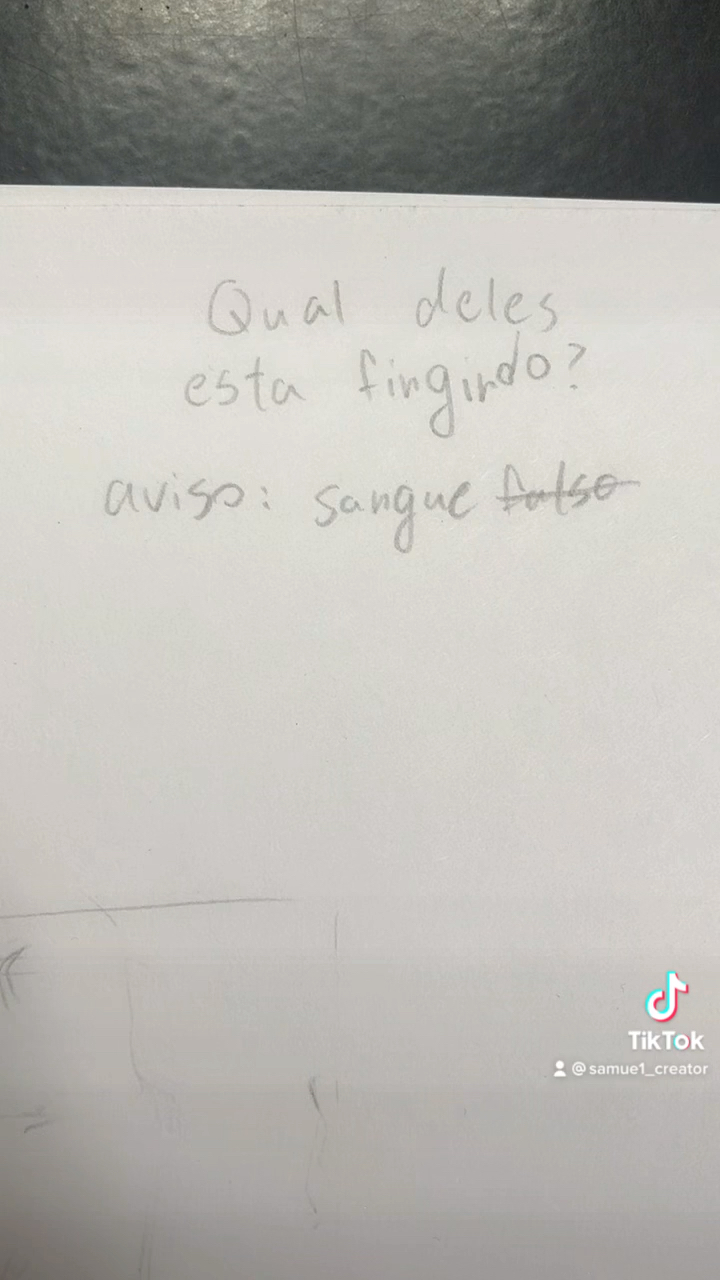 Qual deles
esta fingindo?
aviso: sangue falso
TikTok
@samue1_creator